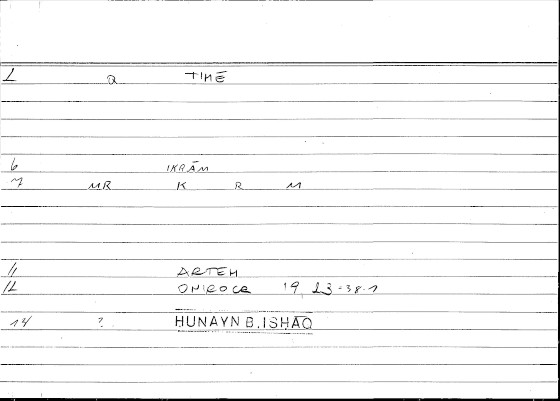 1 Q TIMĒ
6 IKRĀM
7 MR K R M
11 ARTEM
12 ONIROCR 19, 23-38.1
14 ? HUNAYN B. ISHĀQ